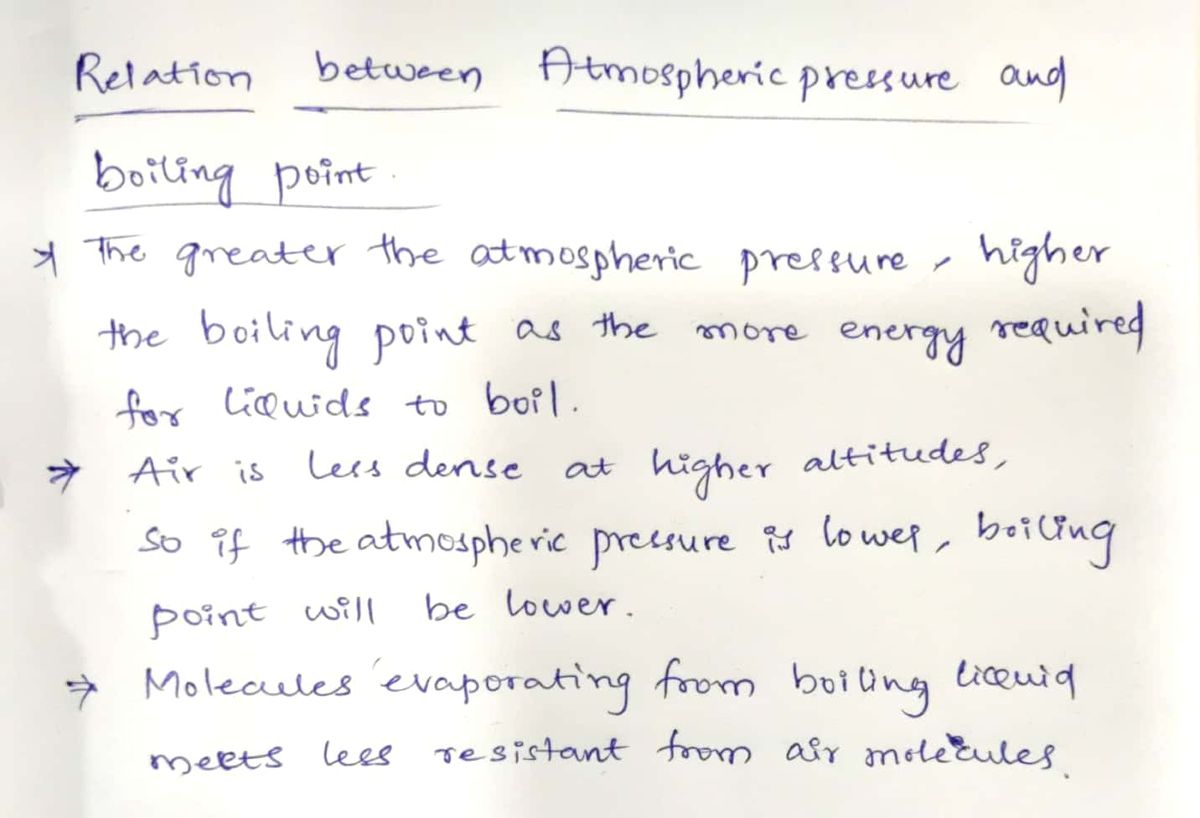 Relation between Atmospheric pressure and
boiling point.
* The greater the atmospheric pressure, higher
the boiling point as the more energy required
for liquids to boil.
→ Air is less dense at higher altitudes,
so if the atmospheric pressure is lower, boiling
point will be lower.
→ Molecules evaporating from boiling liquid
meets less resistant from air molecules.